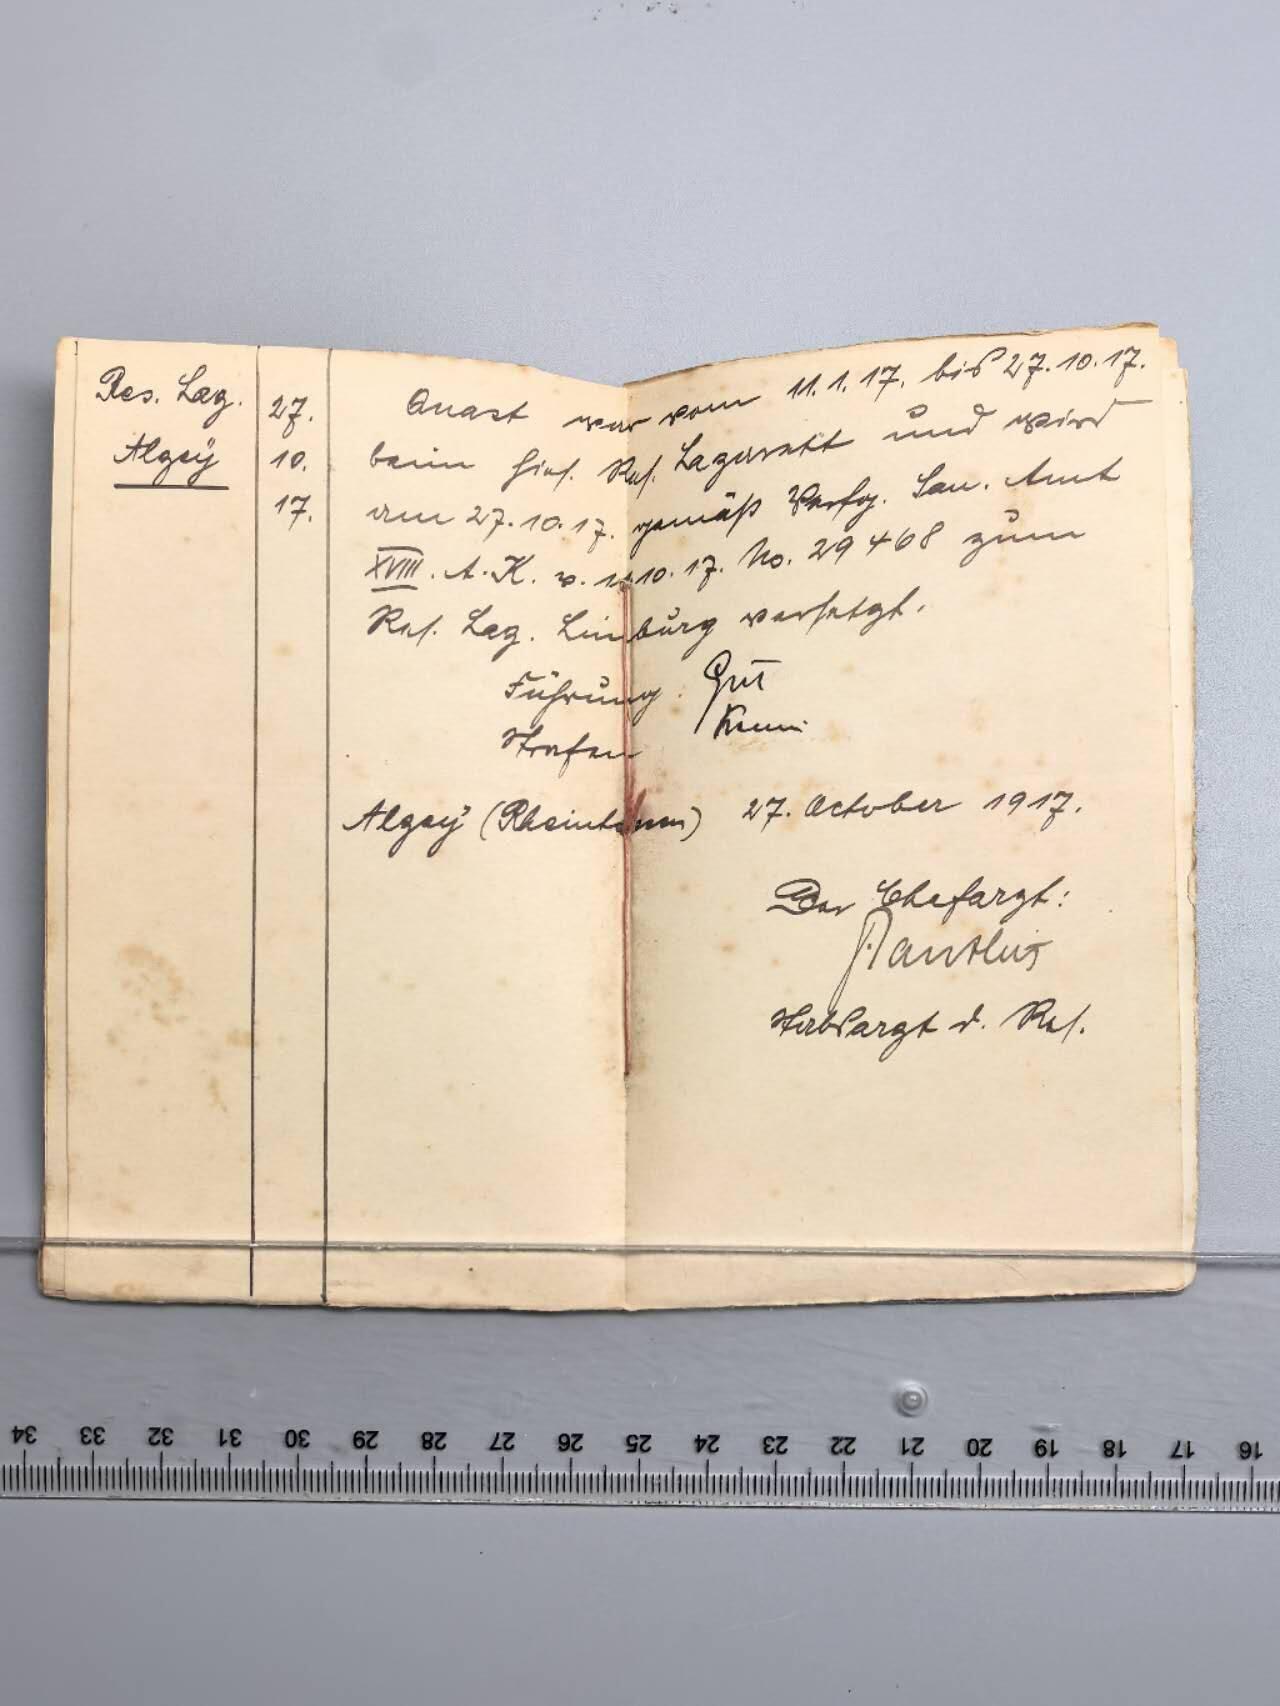 Res. Laz.
Alzey
27.
10.
17.
Quast war vom 11.1.17. bis 27.10.17.
beim hies. Res. Lazarett und wird
am 27.10.17. gemäß Verfg. San. Amt
XVIII. A.K. v. 10.17. No. 29468 zum
Res. Laz. Limburg versetzt.
Führung Gut
Strafen Keine
Alzey (Rheinhessen) 27. October 1917.
Der Chefarzt:
Stabsarzt d. Res.
34 33 32 31 30 29 28 27 26 25 24 23 22 21 20 19 18 17 16